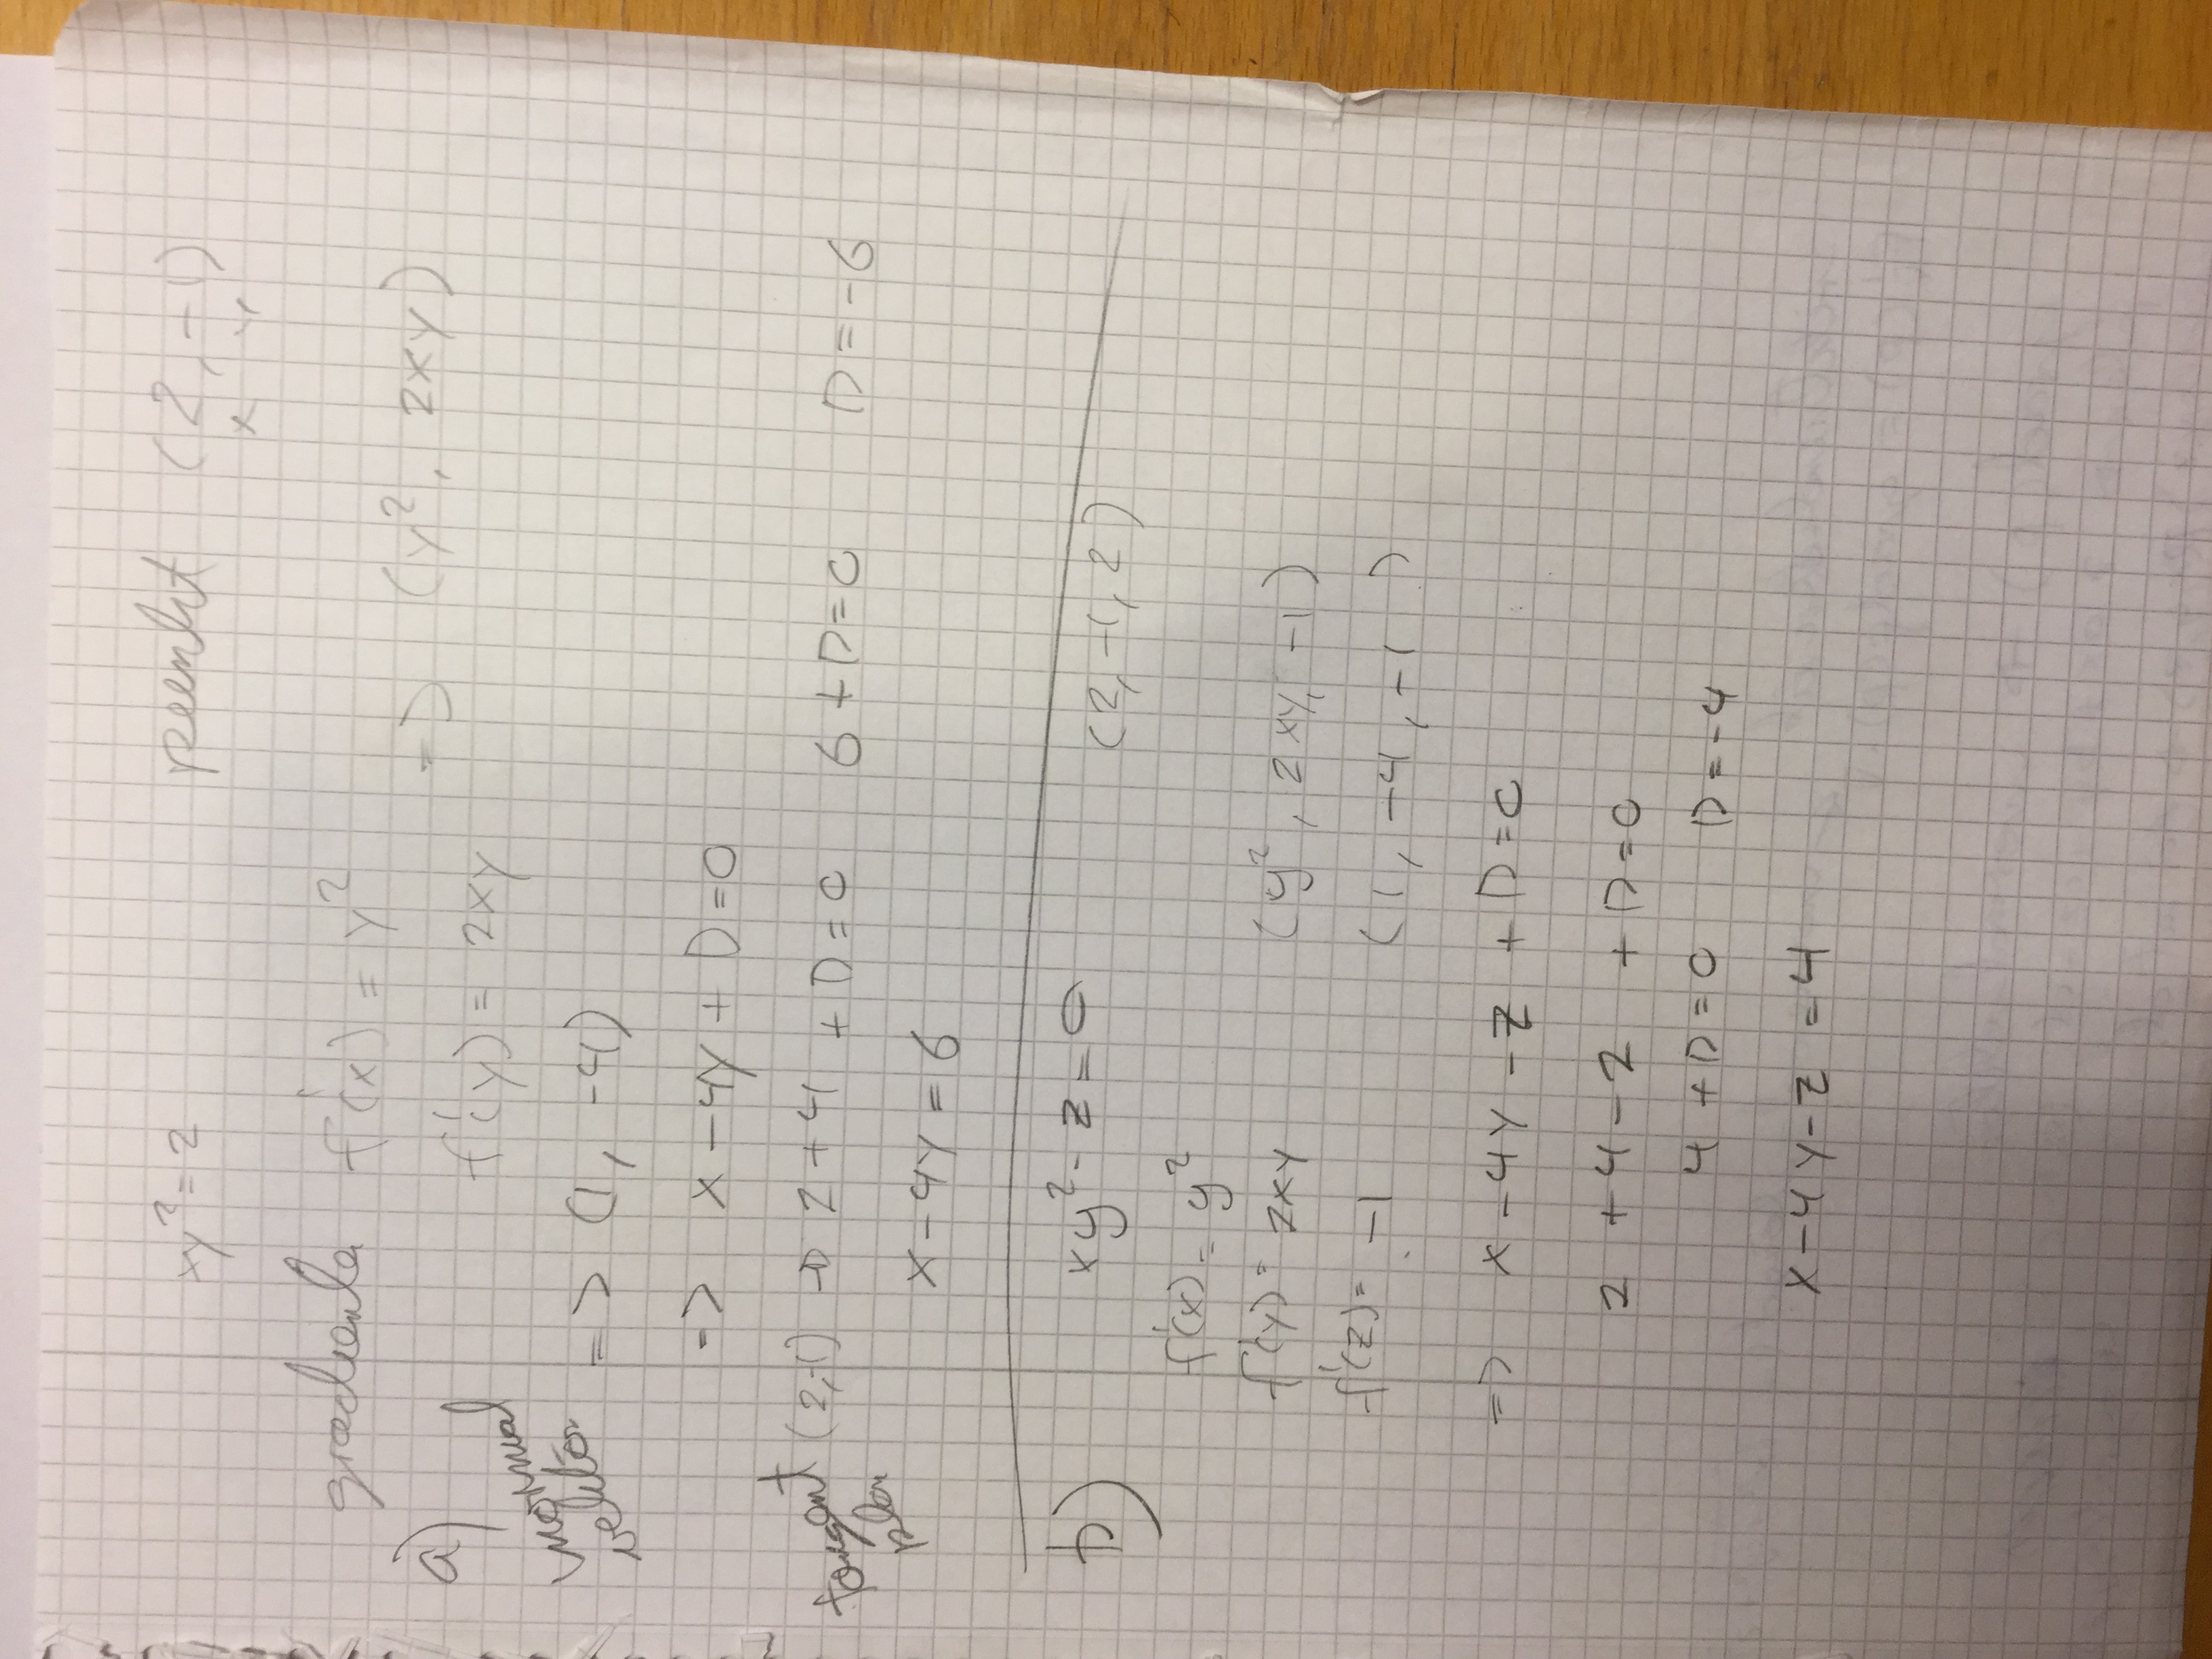 xy² = 2 punkt (2, -1)
x y
gradienta f'(x) = y²
a) => (y², 2xy)
f'(y) = 2xy
normal
vektor => (1, -4)
=> x - 4y + D = 0
tangent (2,-1) => 2 + 4 + D = 0 6 + D = 0 D = -6
plan
x - 4y = 6
b) xy² - z = 0 (2, -1, 2)
f'(x) = y²
f'(y) = 2xy (y², 2xy, -1)
f'(z) = -1 (1, -4, -1)
=> x - 4y - z + D = 0
2 + 4 - 2 + D = 0
4 + D = 0 D = -4
x - 4y - z = 4